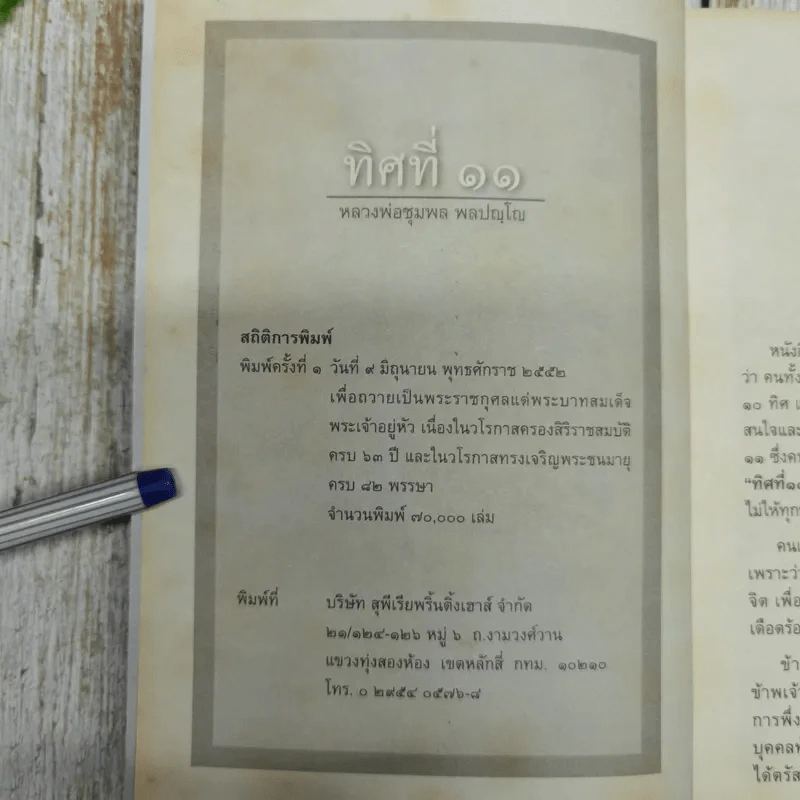 ทิศที่ ๑๑
หลวงพ่อชุมพล พลปญฺโญ
สถิติการพิมพ์
พิมพ์ครั้งที่ ๑ วันที่ ๙ มิถุนายน พุทธศักราช ๒๕๕๒
เพื่อถวายเป็นพระราชกุศลแด่พระบาทสมเด็จ
พระเจ้าอยู่หัว เนื่องในวโรกาสครองสิริราชสมบัติ
ครบ ๖๓ ปี และในวโรกาสทรงเจริญพระชนมายุ
ครบ ๘๒ พรรษา
จำนวนพิมพ์ ๗๐,๐๐๐ เล่ม
พิมพ์ที่ บริษัท สุพีเรียพริ้นติ้งเฮาส์ จำกัด
๒๑/๑๒๔-๑๒๖ หมู่ ๖ ถ.งามวงศ์วาน
แขวงทุ่งสองห้อง เขตหลักสี่ กทม. ๑๐๒๑๐
โทร. ๐ ๒๙๕๔ ๐๕๗๖-๘
ว่า คนทั้ง
๑๐ ทิศ
สนใจและ
๑๑ ซึ่ง
ไม่ให้ทุก
เพราะว่า
จิต เพื่อ
ข้าพเจ้า
การพึ่ง